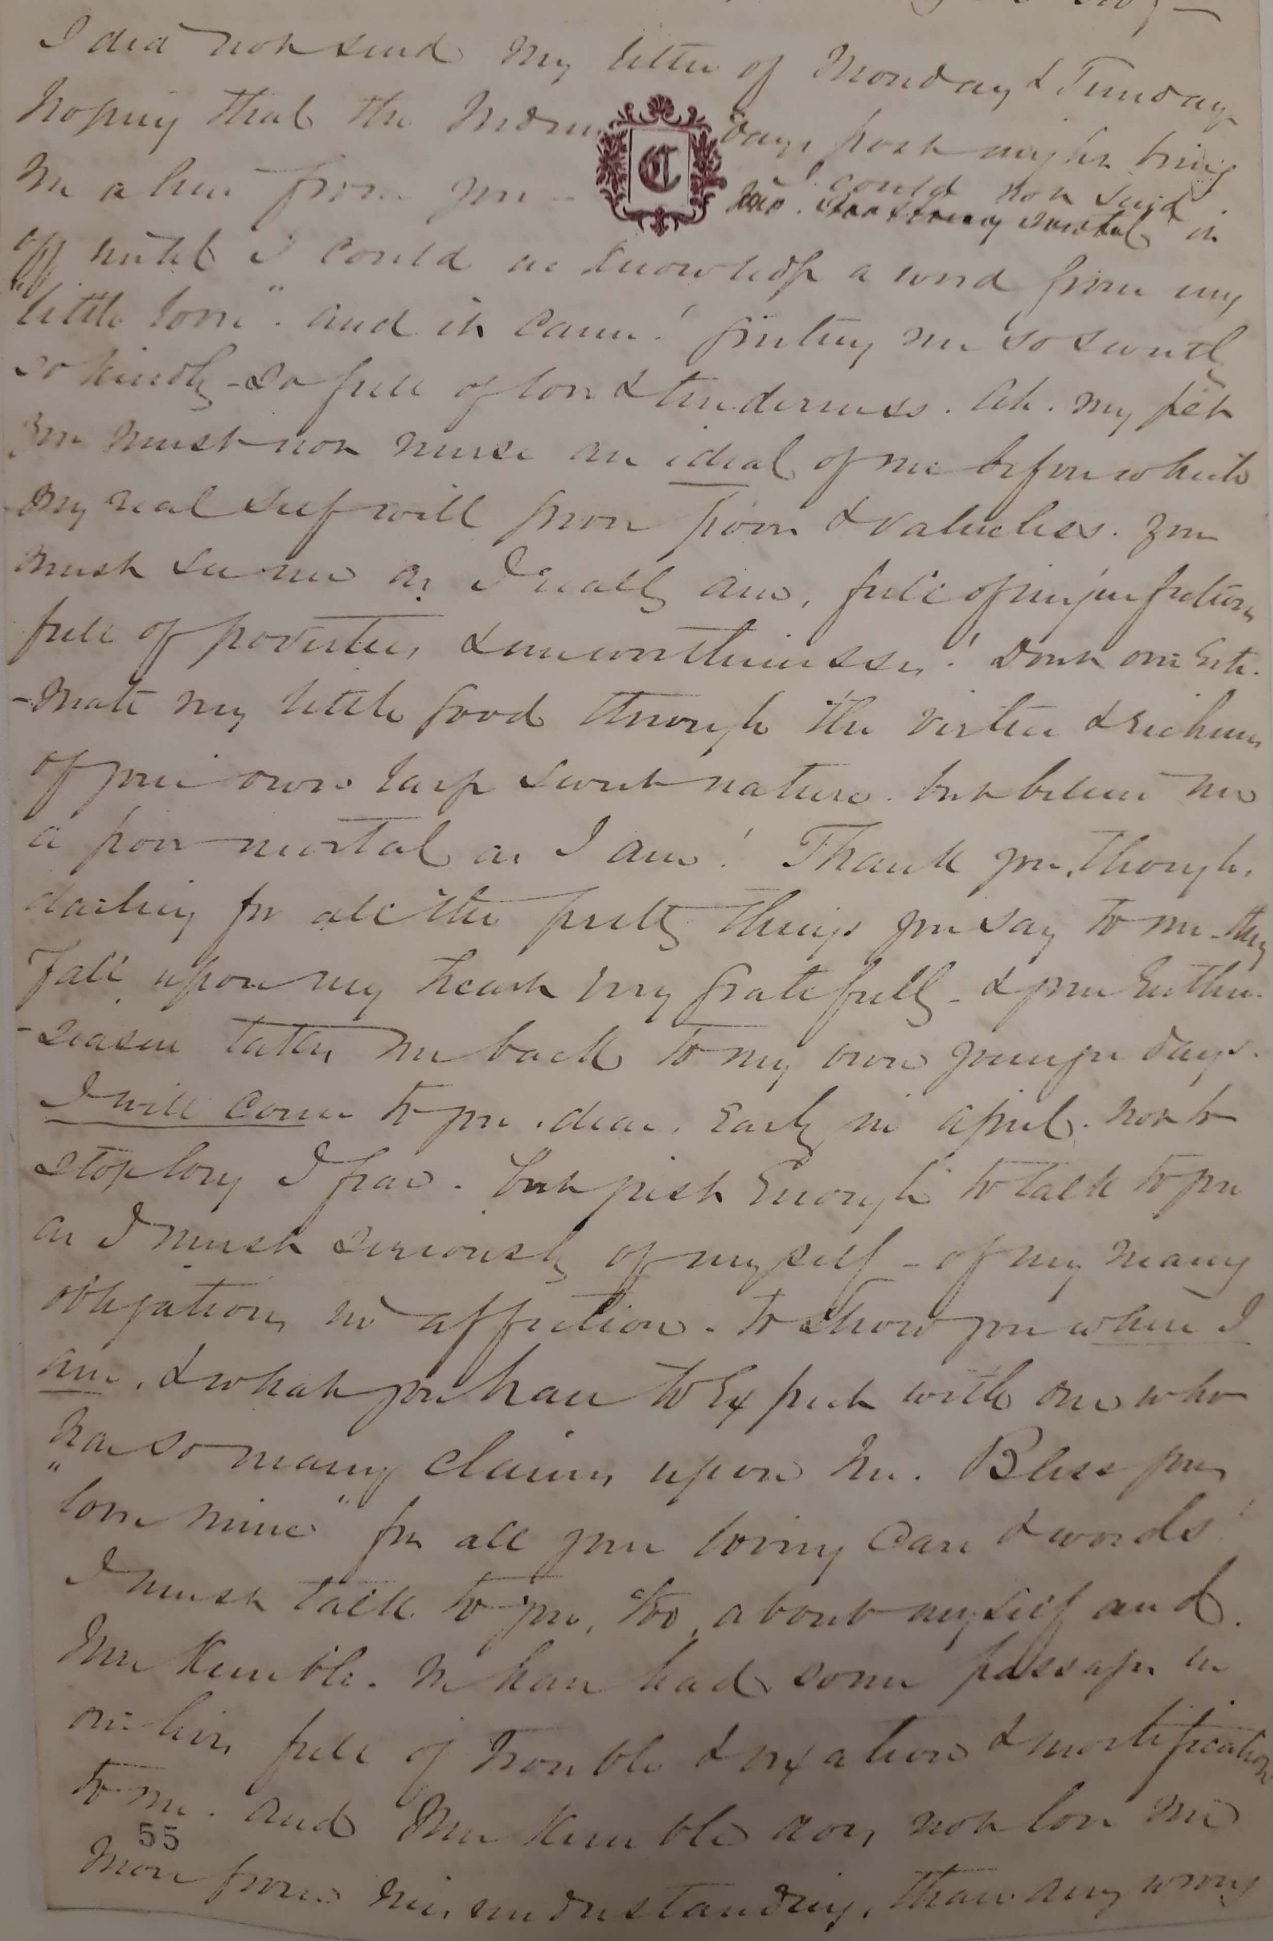 I did not send my letter of Monday & Tuesday
hoping that the Wednes days post might bring
C
me a line from you - I could not send
Mrs. in
off until I could acknowledge a word from my
"little love". and it came! greeting me so sweetly
so kindly - so full of love & tenderness. Ah. my pet
you must not nurse an ideal of me before which
my real self will prove poor & valueless. You
must see me as I really am, full of imperfections
full of poverties, & unworthinesses! Dont over esti-
-mate my little good through the virtue & richness
of your own large sweet nature. but believe me
a poor mortal as I am! Thank you, though,
darling for all the pretty things you say to me - they
fall upon my heart very gratefully - & your enthu-
-seasm takes me back to my own younger days.
I will come to you, dear, early in April. not to
stop long I fear. but just enough to talk to you
as I must seriously of myself - of my many
obligations in affection - to show you where I
am, & what you have to expect with one who
has so many claims upon her. Bless you,
"love mine" for all your loving care & words!
I must talk to you, too, about myself and
Mrs Kemble. We have had some passages in
our lives full of trouble & vexation & mortification
to me. and Mrs Kemble does not love me
55
more from misunderstanding, than any wrong